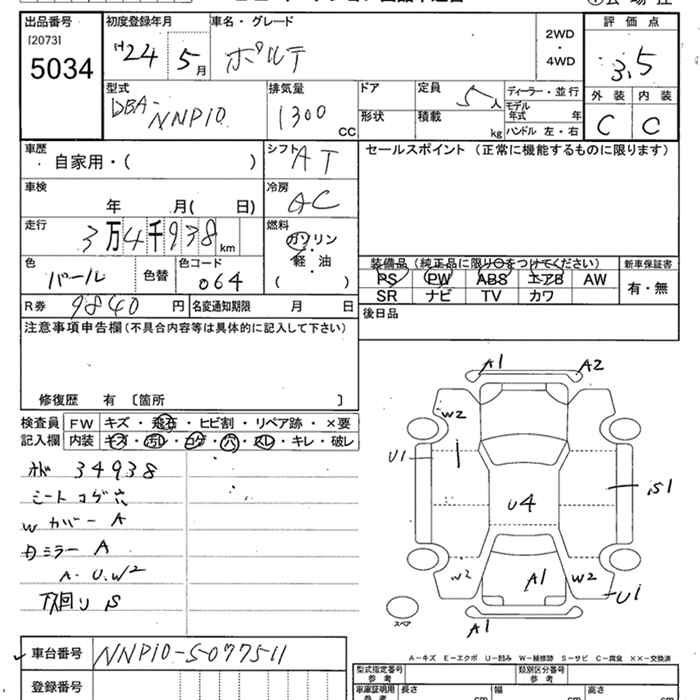 出品番号 初度登録年月 車名・グレード 評価点
[2073] 5034 H24 5月 ポルテ 2WD・4WD 3.5
型式 排気量 ドア 定員 ディーラー・並行 外装 内装
DBA-NNP10 1300 CC 5人 モデル年式 年 C C
形状 積載 kg ハンドル 左・右
車歴 シフト セールスポイント (正常に機能するものに限ります)
自家用・( ) AT
車検 冷房
年 月( 日) AC
走行 燃料
3万4千938km ガソリン
軽・油
( )
色 色替 色コード
パール 064
装備品 (純正品に限り○をつけてください) 新車保証書
PS PW ABS エアB AW 有・無
SR ナビ TV カワ
R券 9840円 名変通知期限 月 日
後日品
注意事項申告欄(不具合内容等は具体的に記入して下さい)
修復歴 有 [箇所 ]
検査員 FW キズ・飛石・ヒビ割・リペア跡・×要
記入欄 内装 キズ・汚レ・コゲ・穴・スレ・キレ・破レ
34938
シートコゲ穴
Wカバー A
ミラー A
A・U・W2
下回り S
A1 A2
W2
U1 U4 S1
W2 A1 W2 U1
A1
スペア
A-キズ E-エクボ U-凹み W-補修跡 S-サビ C-腐食 XX-交換済
車台番号 NNP10-5077511
登録番号
型式指定番号 参考 類別区分番号 参考
車庫証明用 参考 長さ cm 幅 cm 高さ cm